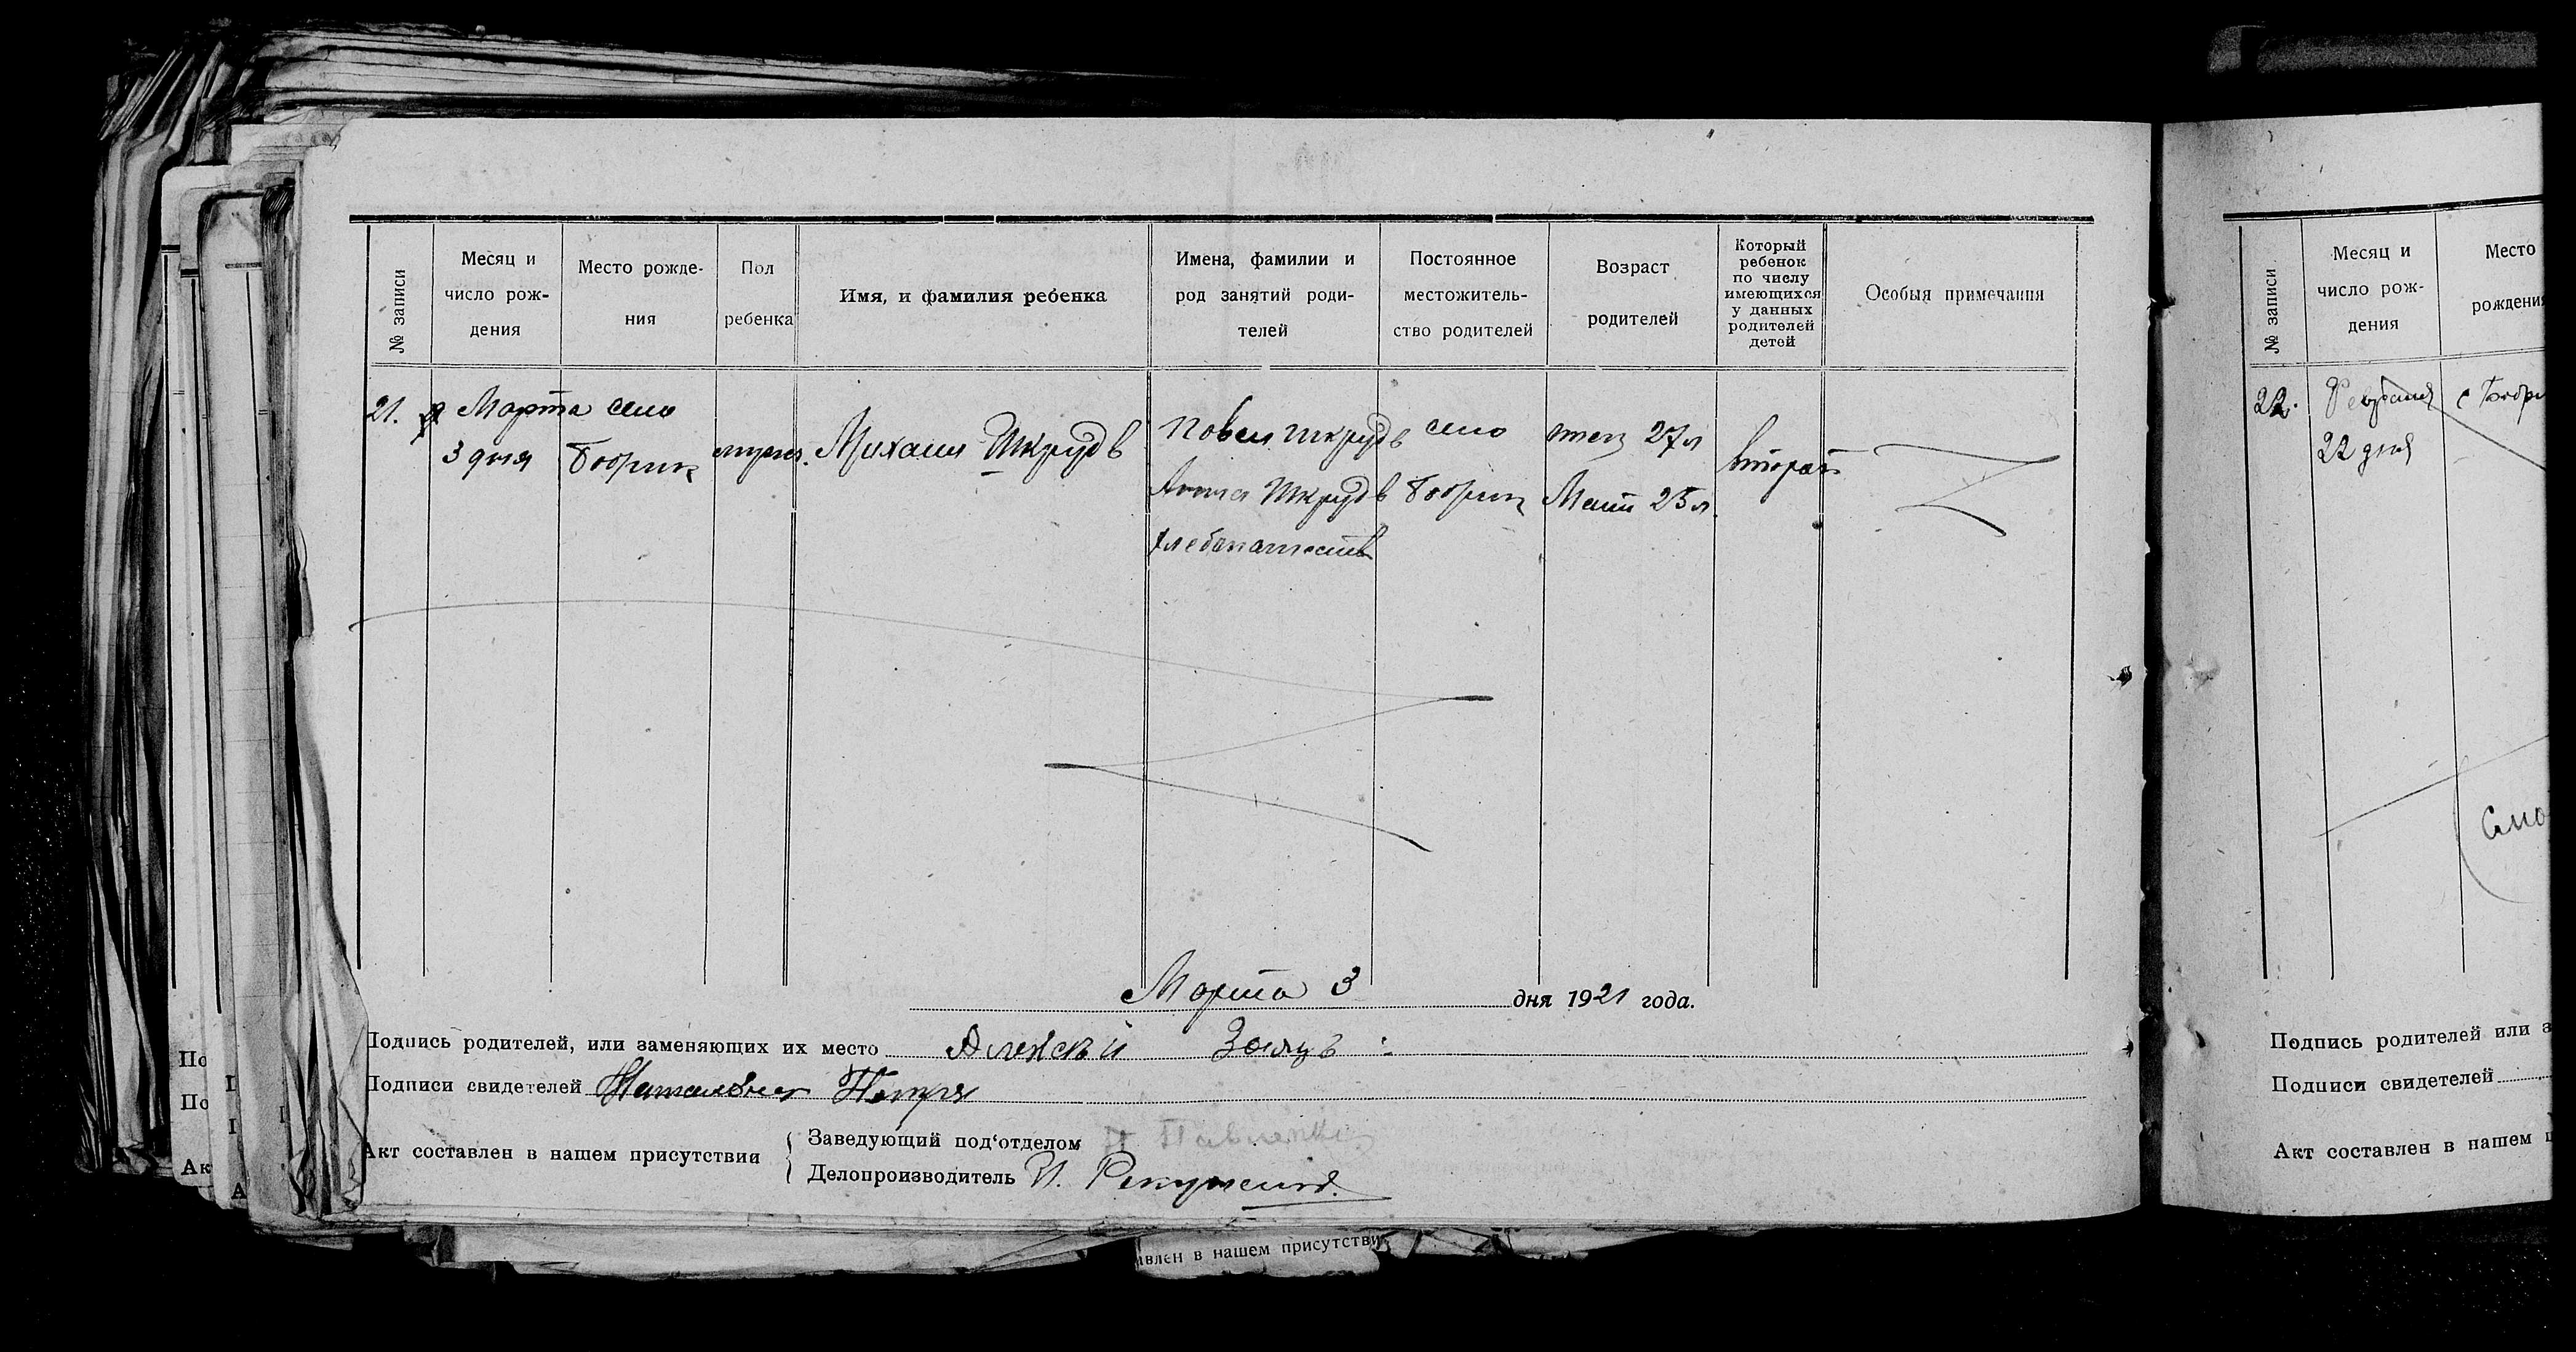 № записи
Месяц и число рож-дения
Место рожде-ния
Пол ребенка
Имя, и фамилия ребенка
Имена, фамилии и род занятий роди-телей
Постоянное местожитель-ство родителей
Возраст родителей
Который ребенок по числу имеющихся у данных родителей детей
Особыя примечания
21. Марта село
3 дня Бобрик
Михаил Шкрудь
Повел Шкрудь село отец 27 л
Анна Шкрудь Бобрик Мать 25 л.
второй
Марта 3 дня 1921 года.
Подпись родителей, или заменяющих их место Алексѣй Заяцъ
Подписи свидетелей Петря
Акт составлен в нашем присутствии
Заведующий под'отделом Павленко
Делопроизводитель И.
авлен в нашем присутстви
По
По
Ак
А
№ записи
Месяц и число рож-дения
Место рождения
22. Февраля с Бобри
22 дня
Подпись родителей или з
Подписи свидетелей
Акт составлен в нашем п